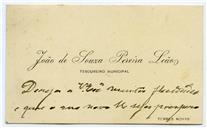 João de Souza Pereira Leão
TESOUREIRO MUNICIPAL
Deseja a V. Exª muitas felicidades
e que o ano novo lh seja prospero
TORRES NOVAS